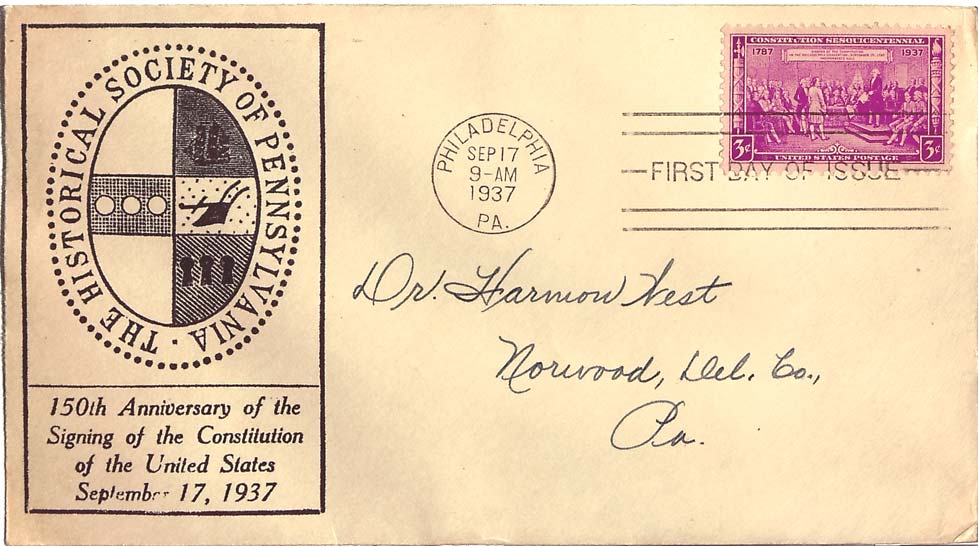 THE HISTORICAL SOCIETY OF PENNSYLVANIA ·
150th Anniversary of the
Signing of the Constitution
of the United States
September 17, 1937
PHILADELPHIA
SEP 17
9-AM
1937
PA.
CONSTITUTION SESQUICENTENNIAL
1787 1937
3¢ 3¢
UNITED STATES POSTAGE
FIRST DAY OF ISSUE
Dr. Harmon West
Norwood, Del. Co.,
Pa.